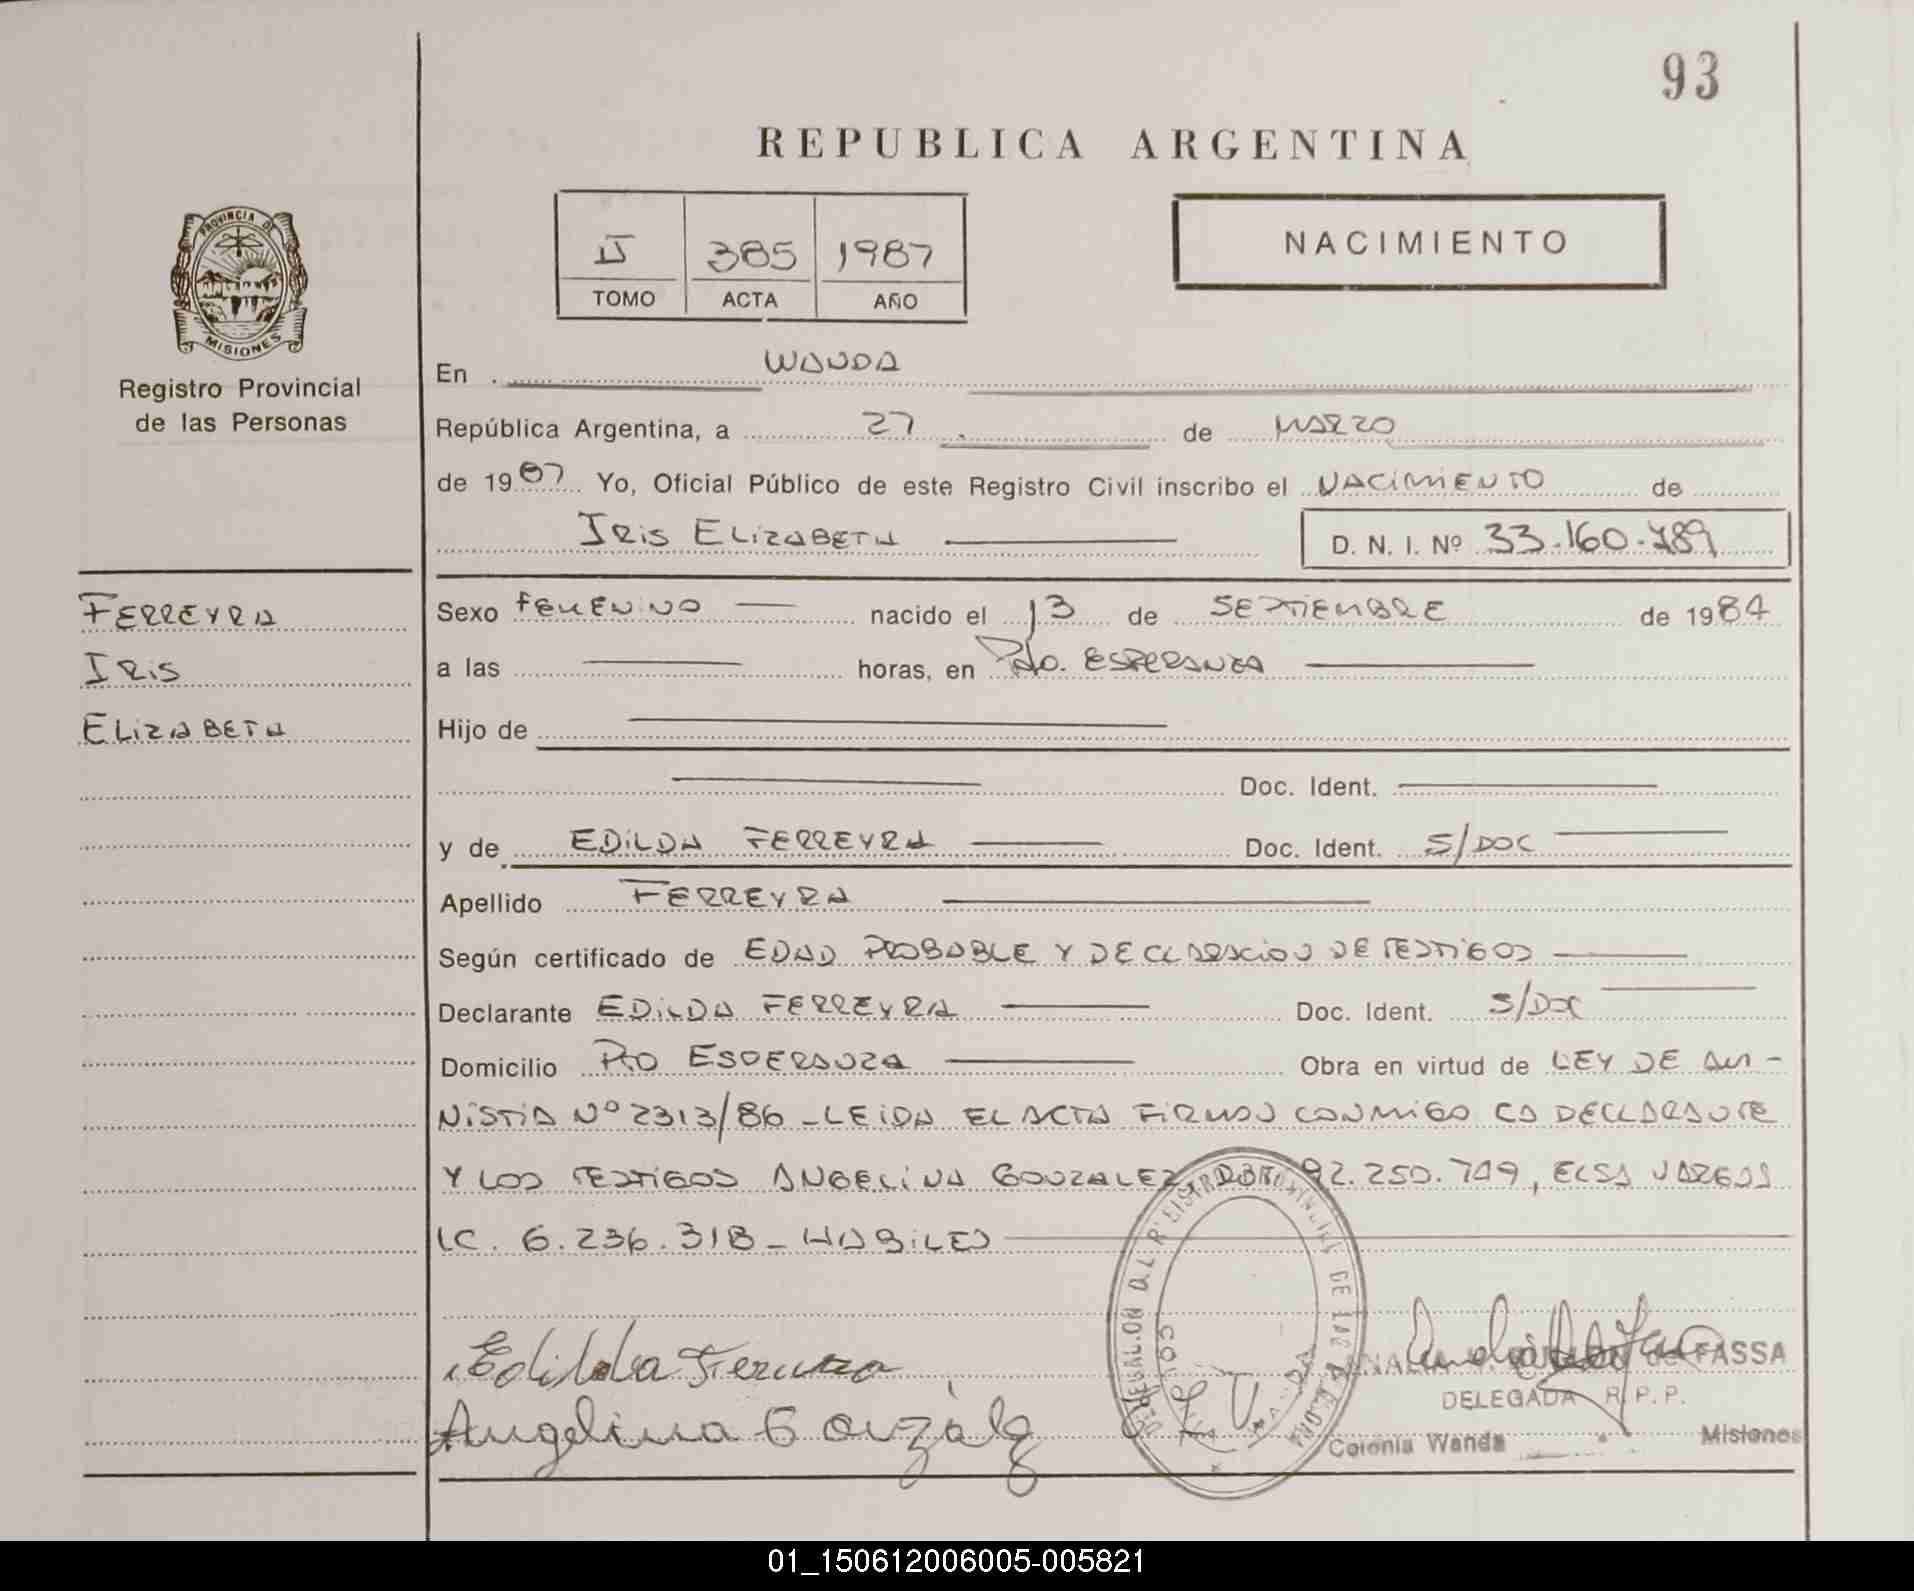 93
REPUBLICA ARGENTINA
II 385 1987
TOMO ACTA AÑO
NACIMIENTO
PROVINCIA DE
MISIONES
Registro Provincial
de las Personas
En WANDA
República Argentina, a 27 de MARZO
de 1987 Yo, Oficial Público de este Registro Civil inscribo el NACIMIENTO de
IRIS ELIZABETH D. N. I. Nº 33.160.789
FERREYRA
IRIS
ELIZABETH
Sexo FEMENINO nacido el 13 de SEPTIEMBRE de 1984
a las horas, en Pto. ESPERANZA
Hijo de
Doc. Ident.
y de EDILDA FERREYRA Doc. Ident. S/DOC
Apellido FERREYRA
Según certificado de EDAD PROBABLE Y DECLARACION DE TESTIGOS
Declarante EDILDA FERREYRA Doc. Ident. S/DOC
Domicilio PTO ESPERANZA Obra en virtud de LEY DE AM-
NISTIA Nº 2313/86 - LEIDA EL ACTA FIRMAN CONMIGO LA DECLARANTE
Y LOS TESTIGOS ANGELINA GONZALEZ, DNI 92.250.749, ELSA VARGAS
LC. 6.236.318 - HABILES
Edilda Ferreyra
Angelina Gonzálz
E V
de FASSA
DELEGADA R.P.P.
Colonia Wanda Misiones
01_150612006005-005821